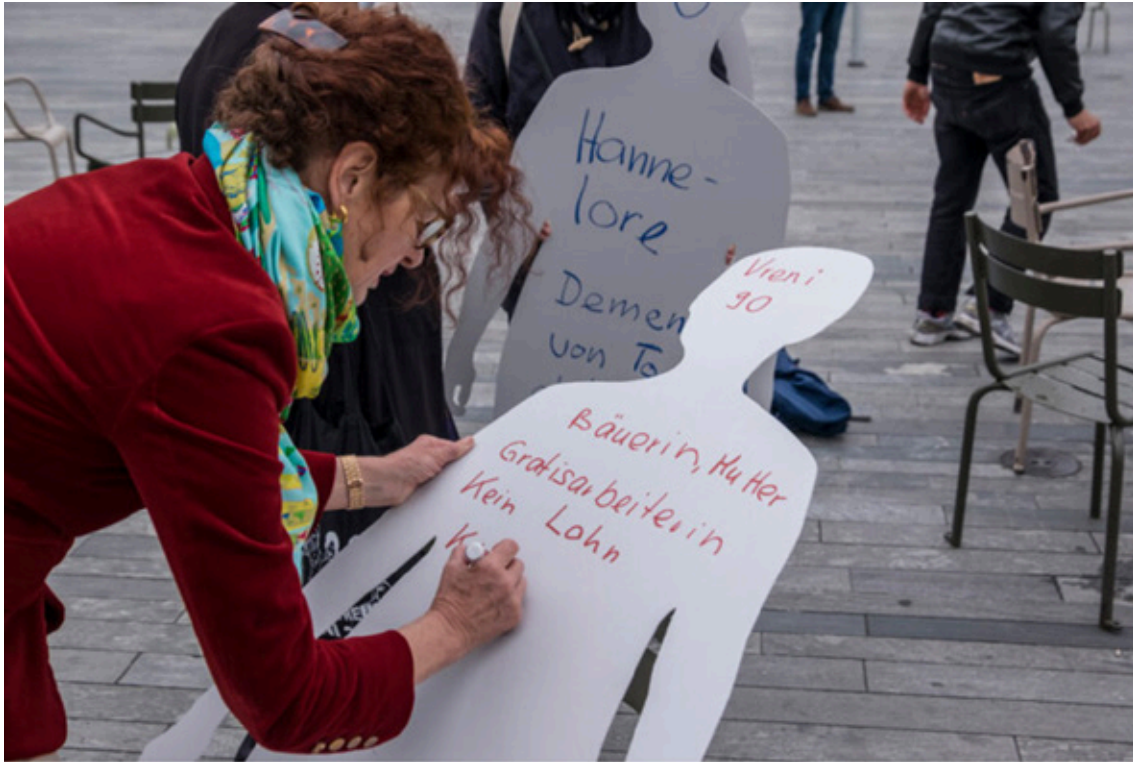 Hanne-
lore
Demen
von To
Vreni
90
Bäuerin, Mutter
Gratisarbeiterin
Kein Lohn
K